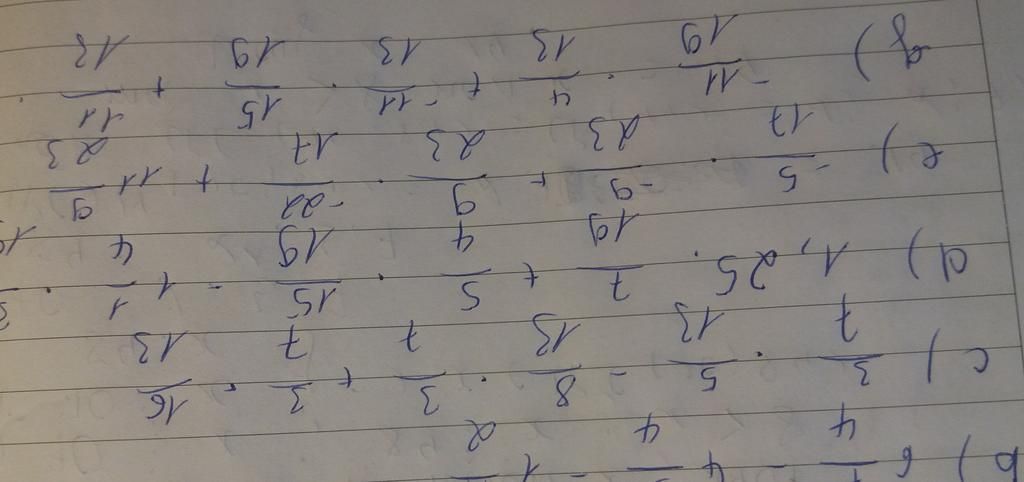 b) 6 1/4 - 4 /4 - 1 /2
c) 3/7 · 5/13 - 8/13 · 3/7 + 3/7 · 16/13
d) 1,25 · 7/19 + 5/4 · 15/19 - 1 1/4 ·
e) -5/17 · -9/23 + 9/23 · -22/17 + 11 9/23
g) -11/19 · 4/13 + -11/13 · 15/19 + 11/13 ·